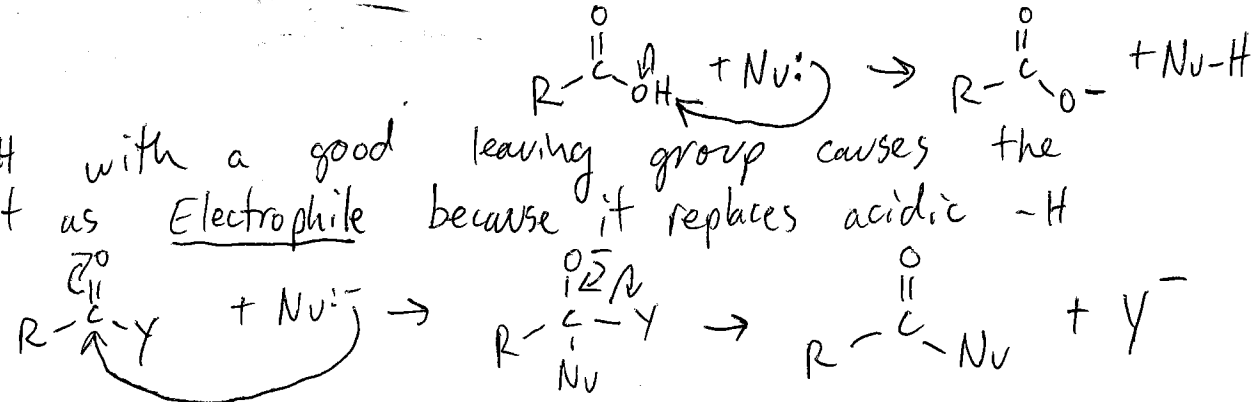 O O
R-C-OH + Nu: → R-C-O- + Nu-H
H with a good leaving group causes the
t as Electrophile because it replaces acidic -H
O O- O
R-C-Y + Nu:- → R-C-Y → R-C-Nu + Y-
Nu